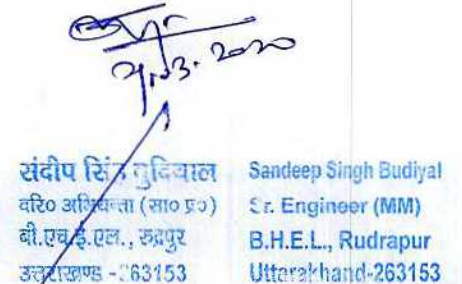 संदीप सिंह बुदियाल
वरि० अभियन्ता (सा० प्र०)
बी.एच.ई.एल., रुद्रपुर
उत्तराखण्ड -263153
Sandeep Singh Budiyal
Sr. Engineer (MM)
B.H.E.L., Rudrapur
Uttarakhand-263153